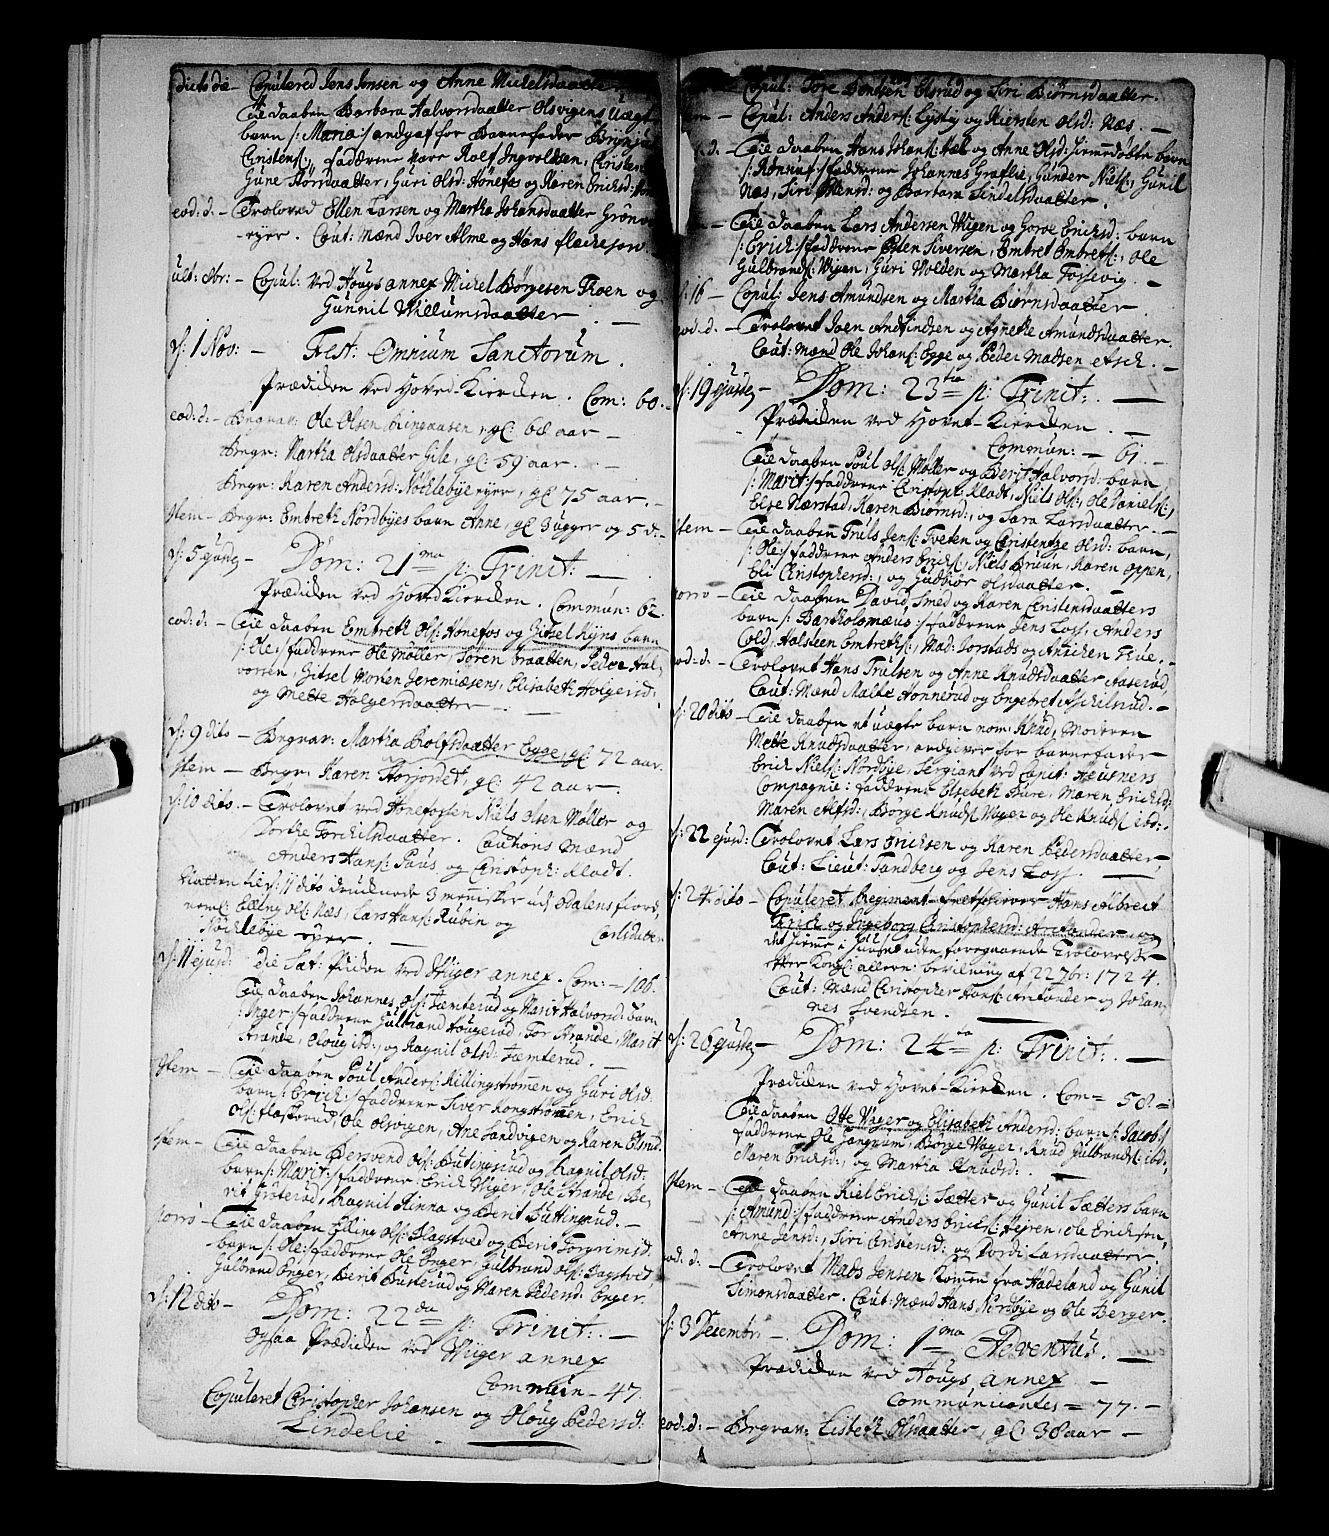 dicto die – Copulered Jens Jensen og Anne Michelsdaatter
Till daaben Barbara Halvorsdaatter Olsvigens Uægte
barn /: Maria :/ andgaf for Barnefader Brynjul
Cristens:, faddrene vare Rolf Ingvoldsen, Cristen
Gune Thorsdaatter, Guri Olsd: Hønefos og Karen Erichsd:
eod: d: – Troloved Ellen Larsen og Martha Johansdaatter Grøn
eyer. Caut: Mænd Iver Alme og Hans
ult: Obr: – Copul: ved Hougs annex Michel Børgesen Moen og
Gunnil Willumsdaatter. –
d: 1 Nov: – Fest: Omnium Sanctorum.
Prædiken ved Hoved-Kiercken. Com: 60. –
eod: d: – Begrav: Ole Olsen Ringaasen, gl: 68 aar –
Begr: Martha Olsdaatter Lile, gl: 59 aar. –
Begr: Karen Andersd: Nochlebye eyer, gl: 75 aar. –
Item – Begr: Embreth Nordbyes barn Anne, gl: 3 uger og 5 d: –
d: 5 ejusd: – Dom: 21ma p: Trinit: –
Prædiken ved HovedKiercken. Commun: 62.
eod: d: – Till daaben Embreth Ols: Hønefos og Gitsel Kyns barn
/: Ole :/ faddrene Ole Møller, Søren Braatten, Peder Hal-
vorsen, Gitsel Morten Jeremiæsens, Elisabeth Holgersd:
og Mette Holgersdaatter –
d: 9 dito – Begrav: Martha Rolfsdaatter Egge, gl: 72 aar.
Item – Begr: Karen Storjordet, gl: 42 aar.
d: 10 dito – Trolovet ved Hønefossen Niels Olsen Møller og
Dorthe Torchilsdaatter. Cautions Mænd
Anders Hans: Paus og Cristoph: Kladt.
Natten til d: 11 dito druknede 3 mennisker ud Aadalens fiord,
noml: Elling Ols: Næs, Lars Hans: Rubin og Carlsdatter
Nochlebye eyer. –
d: 11 ejusd: Die Sat: Prædiken ved Wiger annex. Com: – 106.
Till daaben Johannes Ols: Tæmterud og Marit Halvorsd: barn
/: Inger :/ faddrene Gulbrand Hougerud, Tor Strande, Marit
Strande, Oloug ibd:, og Ragnil Olsd: Tæmterud. –
Item – Till daaben Poul Anders: Killingstrømmen og Guri Olsd:
barn /: Erich :/ faddrene Siver Kongstrømen, Erich
Ols: Flaskerud, Ole Olsvigen, Ane Sandvigen og Karen Elsrud.
Item – Till daaben Bersvend Ols: Butingsrud og Ragnil Olsd:
barn /: Marit :/ faddrene: Erich Wager, Ole Strande, Be-
rit Grøterud, Ragnil Rinna og Berit Buttingsrud. –
Porrò – Till daaben Elling Ols: Flagstved og Berit Torgrimsd:
barn /: Ole :/ faddrene Ole Enger, Gulbrand Ols: Dagstved
Gulbrand Enger, Berit Busterud og Maren Pedersd: Enger.
d: 12 dito – Dom: 22da p: Trinit: –
ogsaa Prædiken ved Wiger annex
Commun – 47.
Copuleret Cristopher Johansen og Oloug Pedersd:
Lindelie. –
Copul: Tore Bentsen Elsrud og Siri Biørnsdaatter.
Item – Copul: Anders Anders: Lysty og Kiersten Olsd: Næs. –
d: – Till daaben Hans Johans: og Anne Olsd: hiemmedøbte barn
/: Rønnug :/ faddrene Johannes Graflie, Gunder Niels:, Gunil
Næs, Siri Stensd: og Barbara Sindelsdaatter.
Till daaben Lars Andersen Wigen og Gorve Erichsd: barn
/: Erich :/ faddrene Esten Siversen, Embret Embrets:, Ole
Gulbrands: Wigen, Guri Volden og Martha Forsevig. –
d: 16 – Copul: Jens Amundsen og Martha Biørnsdaatter
eod: d: – Trolovet Joen Andfindsen og Agnethe Amundsdaatter.
Caut: Mænd Ole Johans: Egge og Peder Madsen etsch. –
d: 19 ejusd: – Dom: 23tia p: Trinit: –
Prædiken ved Hovet-Kiercken. –
Commun: – 61. –
Till daaben Poul Ols: Møller og Berit Halvorsd: barn
/: Marit :/ faddrene Cristoph: Kladt, Niels Ols:, Ole Daniels:,
Else Nærstad, Karen Biørnsd:, og Sara Larsdaatter –
Item – Till daaben Truls Jens: Tveten og Cristentze Olsd: barn,
/: Ole :/ faddrene Anders Erichs:, Niels Bruun, Karen Oppen,
Eli Cristophersd:, og Gudbiør Olsdaatter. –
Porrò – Till daaben David Smed og Karen Cristensdaatters
barn /: Bartholomæus :/ faddrene Jens Loss, Anders
Cold, Halsteen Embreths:, Mad: Jorstads og Anichen Thue. –
eod: d: – Trolovet Hans Trulsen og Anne Knudsdaatter Aaserud
Caut: Mænd Malte Hønnerud og Engebret Aschilsrud. –
d: 20 dito – Till daaben et uægte barn nom: Knud, Moderen
Mette Knudsdaatter, andgiver for barnefader
Erich Niels: Nordbye, Sergiant ved Capit: Heusners
Compagnie: faddrene Elsebeth Bure, Maren Erichsd:
Maren Alfsd:, Børge Knuds: Wager og Ole Knuds: ibd: –
d: 22 ejusd: Trolovet Lars Erichsen og Karen Pedersdaatter,
Caut: Lieut: Tandberg og Jens Loss. –
d: 24 dito – Copuleret Regiment-Feltskierer Hans Albrect
Frich og Ingeborg Cristophersd: Arctander og
det hieme i Huuset uden foregaaende Trolovelse
efter Kongl: allern: bevilning af 22 7br: 1724.
Caut: Mænd Cristopher Hans: Arctander og Johan-
nes Svendsen. –
d: 26 ejusd: – Dom: 24ta p: Trinit: –
Prædiken ved Hovet-Kiercken. Com = 58 =
Till daaben Otte Wager og Elisabeth Andersd: barn /: Jacob :/
faddrene Ole Jongrum, Børge Wager, Knud Gulbrands: ibd:,
Maren Erichsd:, og Martha Knudsd:. –
Item – Till daaben Kiel Erichs: Sætter og Gunil Sætters barn
/: Amund :/ faddrene Anders Erichs: Heyren, Ole Erichsen,
Anne Jensd:, Siri Cristensd: og Dordi Larsdaatter,
eod: d: – Trolovet Mads Jensen Kommen fra Hadeland og Gunil
Simonsdaatter. Caut: Mænd Hans Nordbye og Ole Berger.
d: 3 Decembr: – Dom: 1ma Adventus. –
Prædiken ved Hougs annex. –
Communicantes = 77. –
eod: d: – Begrav: Lisbeth Olsdaatter, gl: 38 aar –